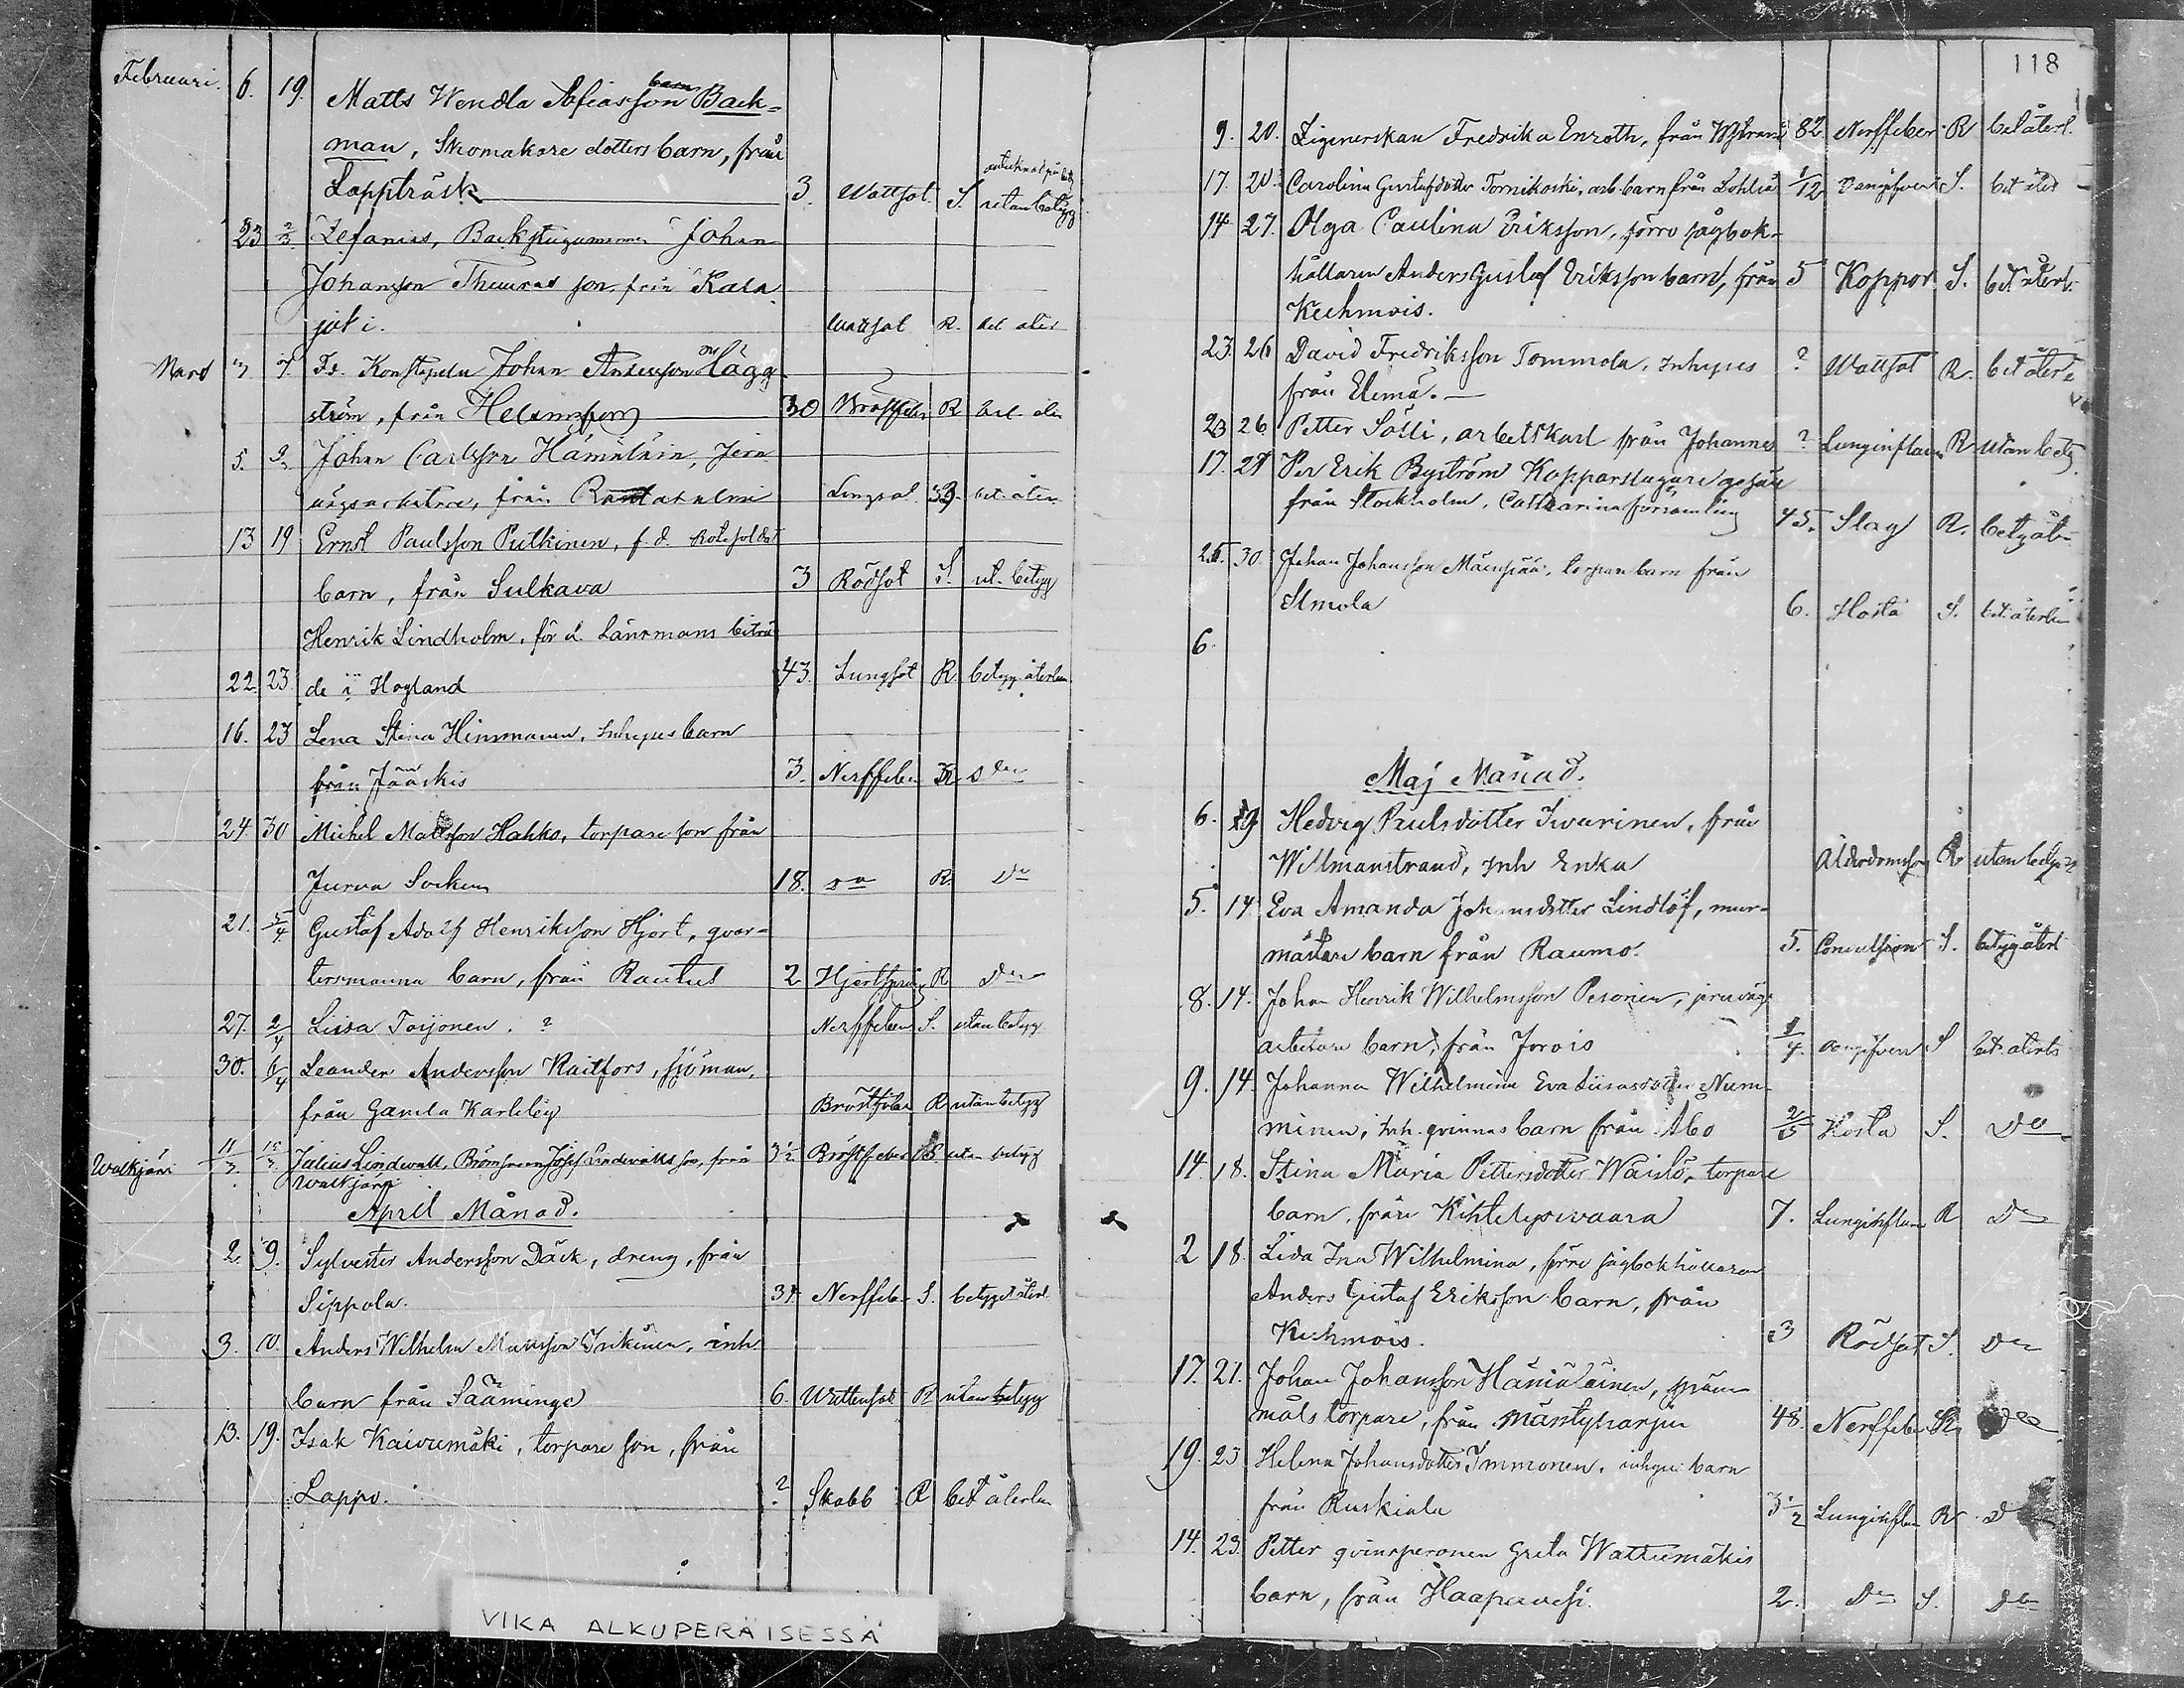 Februari. 6. 19. Matts Wendla Sofiasson barn Back-
man, Skomakare dotters barn, från
Lappträsk 3. Wattsot S. utan betygg
23 2/3 Zefanias, Backstugumannen Johan
Johansson Thuuras son från Kala
joki. Wattsot R. bet åter
Mars 3 7. Fd. Konstapeln Johan Andersson Hägg
ström, från Helsingfors 30 Bröstfeber R bet. åter
5. 9. Johan Carlsson Hämäläin, Jern
vägsarbetare, från Rantasalmi Lungsot 33. bet. åter
13 19 Ernst Paulsson Putkinen, f.d. Rotesoldat
barn, från Sulkava 3 Rödsot S. ut. betygg
Henrik Lindholm, för d. Länsmans biträ
22. 23 de i Hogland 43. Lungsot R. betygg återlem
16. 23 Lena Stina Hinsmanen, Inhyses barn
från Jääskis 3. Nerffeber R Do
24 30 Michel Mattsson Hakko, torpare son från
Jurva Socken 18. Do R. Do
21. 5/4 Gustaf Adolf Henriksson Hjort, qvar-
tersmanna barn, från Rautus 2 Hjertsprång R Do
27. 2/4 Liisa Toijonen. ? Nerffeber S. utan betygg
30. 6/4 Leander Andersson Kaitfors, sjöman,
från Gamla Karleby Bröstfeber R utan betygg
Walkjärvi 11/3 15/3 Julius Lindwall, Josef Lindwalls son, från 3 1/2 Bröstfeber S utan betygg
Walkjärvi
April Månad.
2. 9. Sylvester Andersson Däck, dreng, från
Sippola. 34 Nerffeber S. betyget återl
3. 10. Anders Wilhelm Mattsson Inkinen, inh
barn från Sääminge 6. Wattensot R utan betygg
13. 19. Isak Kaivumäki, torpare son, från
Lappo. ? Skabb R bet återlem
VIKA ALKUPERÄISESSÄ
118
9. 20. Zigenerskan Fredrika Enroth, från Wstrand 82 Nerffeber R bet återl.
17. 20. Carolina Gustafsdotter Tornikoski, arb. barn från Lohtia 1/12 Oangifven S. bet åter
14 27. Olga Paulina Eriksson, förre sågbok-
hållaren Anders Gustaf Eriksson barn, från 5 Koppor S. bet återl.
Kechmois.
23. 26 David Fredriksson Tommola, Inhyses ? Wattsot R. bet återl
från Elimä.
23 26 Petter Sälli, arbetskarl från Johannes ? Lunginflam R utan betg.
17. 27 Per Erik Byström Kopparslagare gesäll
från Stockholm, Catharina församling 45. Slag R. betg åter
25. 30. Johan Johansson Mäenpää, torpare barn från
Ilmola 6. Hosta S. bet. återlem
6.
Maj Månad.
6. 19 Hedvig Paulsdotter Iivarinen, från
Wilmanstrand, Inh Enka Ålderdomsv R utan betyg
5. 14. Eva Amanda Johansdotter Lindlöf, mur-
mästare barn från Raumo. 5. Convulsion S. betyg återl
8. 14. Johan Henrik Wilhelmsson Pesonen, jernvägs
arbetare barn, från Jorois 1/4. oangifven S bet. återl
9. 14. Johanna Wilhelmina Eva Liisasdotter Num-
minen, Inh. qvinnas barn från Åbo 2/5 Hosta S. Do
14. 18. Stina Maria Pettersdotter Waislö, torpare
barn, från Kihtelysvaara 7. Lunginflam R Do
2 18. Lida Ina Wilhelmina, förre sågbokhållaren
Anders Gustaf Eriksson barn, från
Kechmois. 3 Rödsot S. Do
17. 21. Johan Johansson Hämäläinen, späns
måls torpare, från Mäntyharju 48. Nerffeber R Do
19. 23 Helena Johansdotter Immonen, inhyses barn
från Ruskiala 3 1/2 Lunginflam R D
14. 23. Petter qvinspersonen Greta Wattumäkis
barn, från Haapavesi. 2. Do S. Do